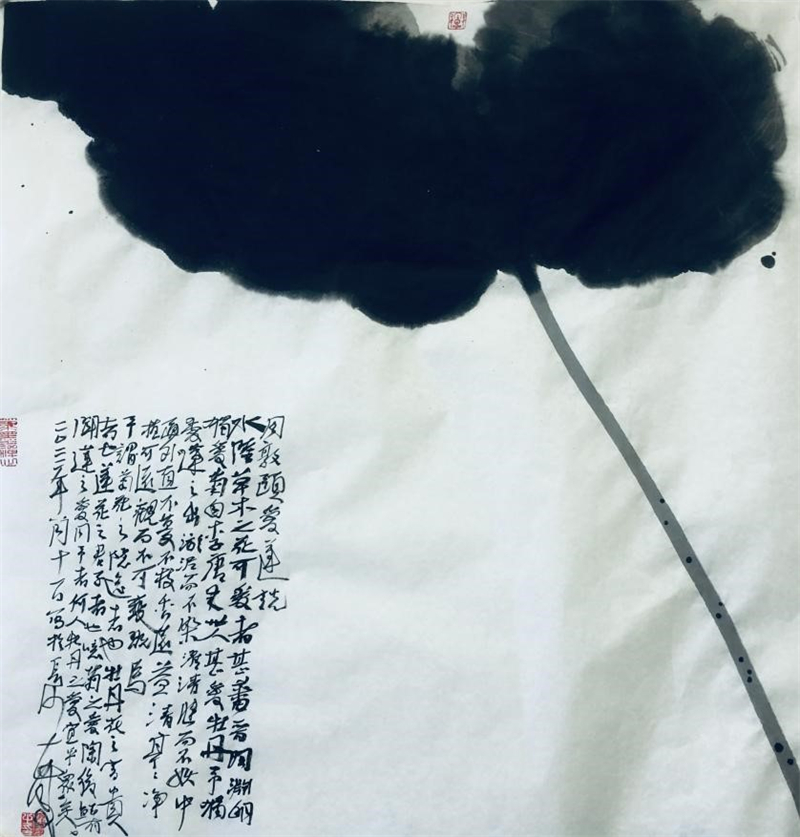 周敦頤愛蓮説
水陸草木之花可愛者甚蕃晋陶淵明
獨愛菊自李唐来世人甚愛牡丹予獨
愛蓮之出淤泥而不染濯清漣而不妖中
通外直不蔓不枝香遠益清亭〻净
植可遠觀而不可褻玩焉
予謂菊花之隱逸者也牡丹花之富貴
者也蓮花之君子者也噫菊之愛陶後鮮有
聞蓮之愛同予者何人牡丹之愛宜乎衆矣
年 十 寫於長沙